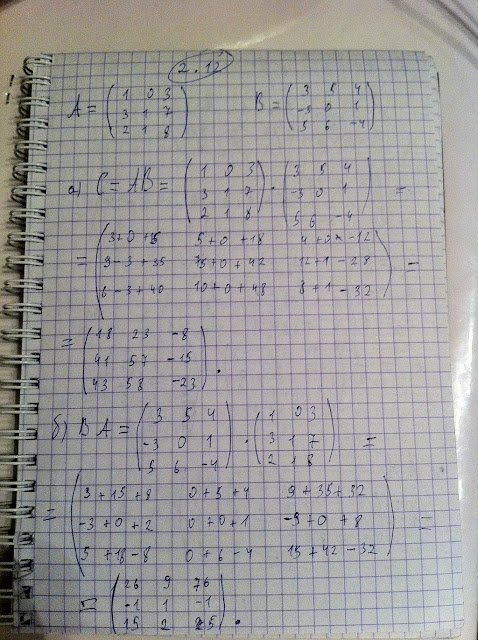 2.12
A = ( 1 0 3 B = ( 3 5 4
3 1 7 -3 0 1
2 1 8 ) 5 6 -4 )
а) C = AB = ( 1 0 3 · ( 3 5 4 =
3 1 7 -3 0 1
2 1 8 ) 5 6 -4 )
= ( 3+0+15 5+0+18 4+0-12
9-3+35 15+0+42 12+1-28 =
6-3+40 10+0+48 8+1-32 )
= ( 18 23 -8
41 57 -15
43 58 -23 ) .
б) BA = ( 3 5 4 · ( 1 0 3 =
-3 0 1 3 1 7
5 6 -4 ) 2 1 8 )
= ( 3+15+8 0+5+4 9+35+32
-3+0+2 0+0+1 -9+0+8 =
5+18-8 0+6-4 15+42-32 )
= ( 26 9 76
-1 1 -1
15 2 25 ) .